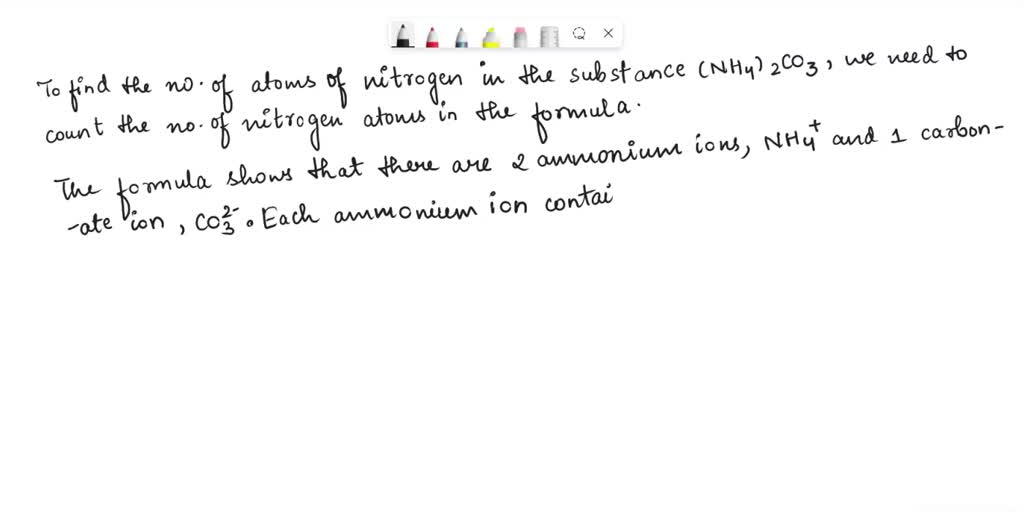 To find the no. of atoms of nitrogen in the substance (NH4)2CO3, we need to
count the no. of nitrogen atoms in the formula.
The formula shows that there are 2 ammonium ions, NH4+ and 1 carbon-
-ate ion, CO3^2-. Each ammonium ion contai